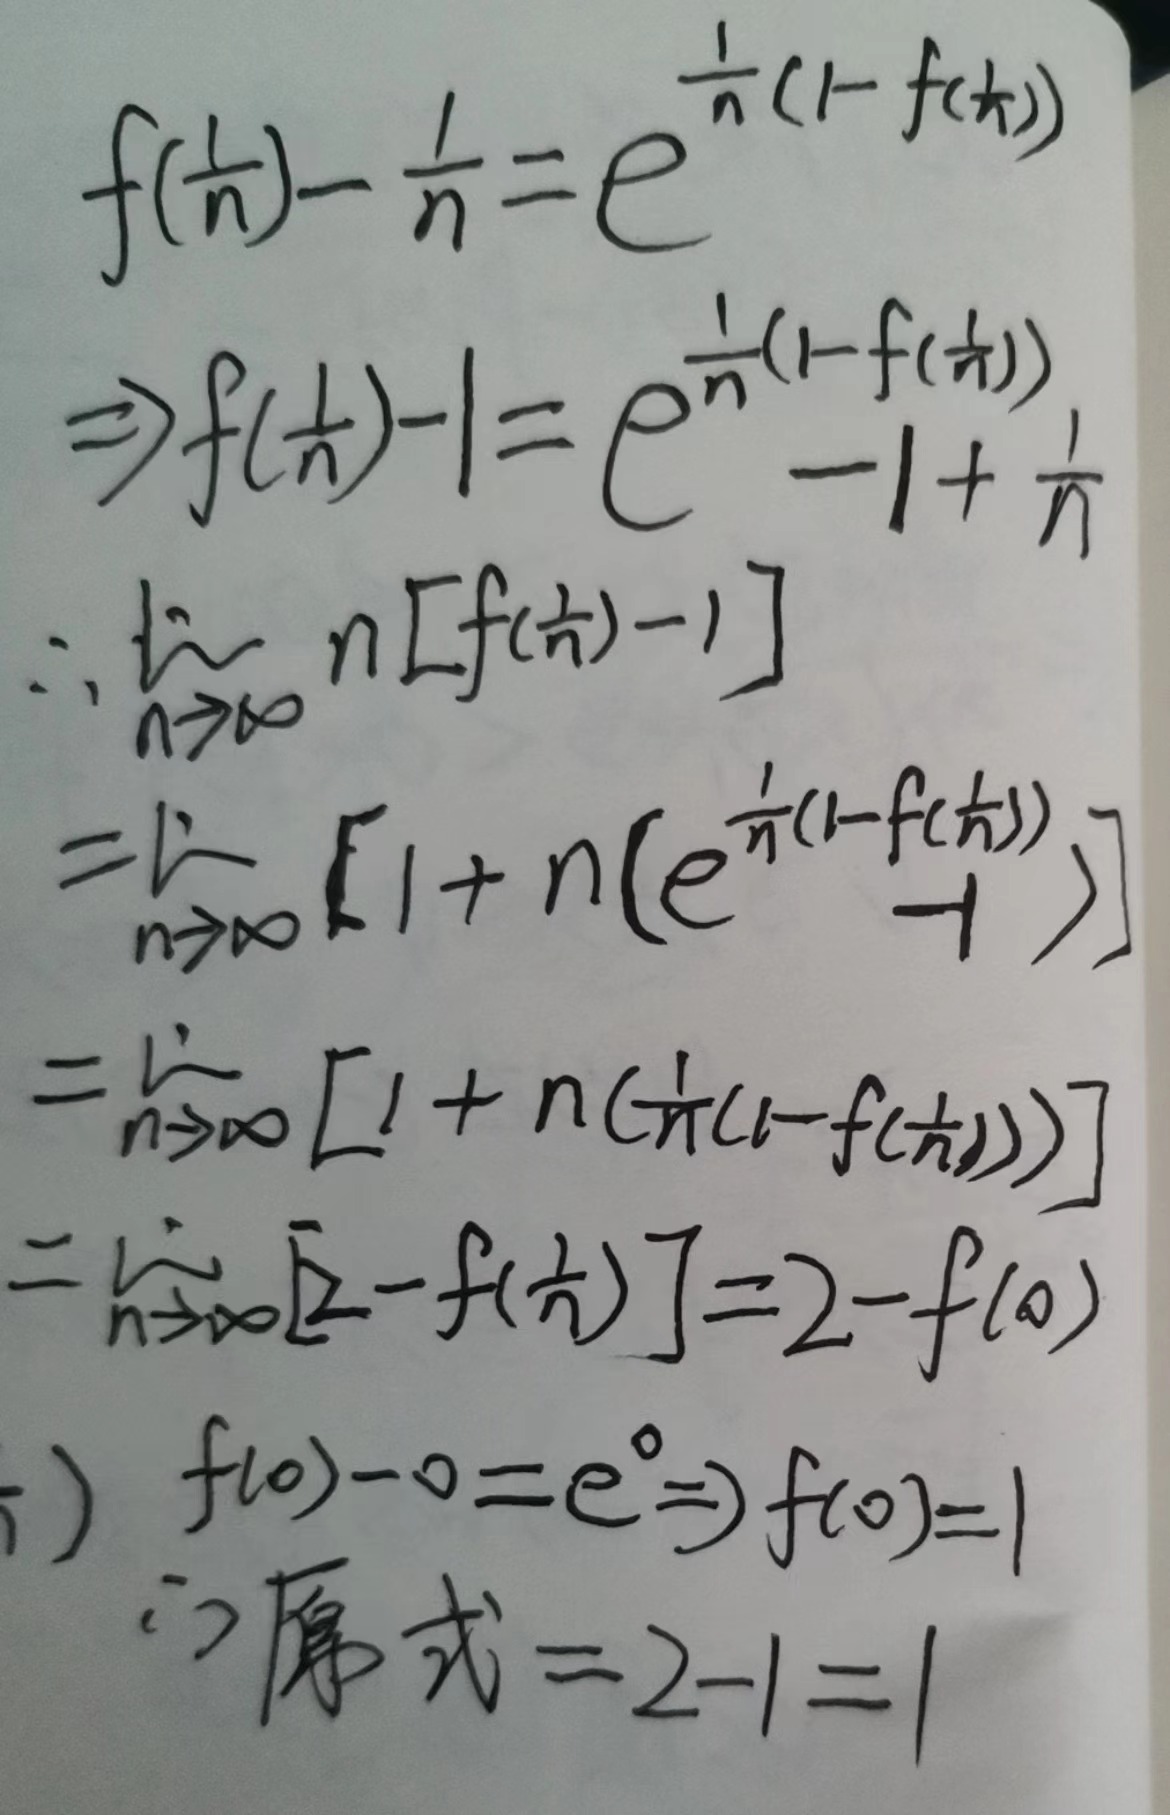 f(1/n) - 1/n = e^{1/n(1 - f(1/n))}
⇒ f(1/n) - 1 = e^{1/n(1 - f(1/n))} - 1 + 1/n
∴ lim_{n→∞} n[f(1/n) - 1]
= lim_{n→∞} [1 + n(e^{1/n(1 - f(1/n))} - 1)]
= lim_{n→∞} [1 + n(1/n(1 - f(1/n)))]
= lim_{n→∞} [2 - f(1/n)] = 2 - f(0)
) f(0) - 0 = e^0 ⇒ f(0) = 1
∴ 原式 = 2 - 1 = 1